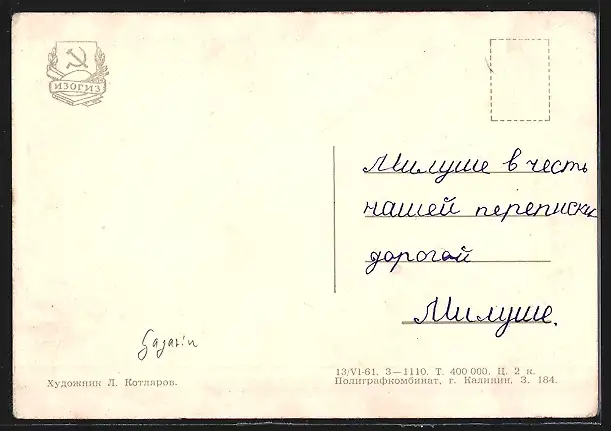 ИЗОГИЗ
Милуше в честь
нашей переписки
дорогой
Милуше.
Gagarin
Художник Л. Котларов.
13/VI-61. З—1110. Т. 400 000. Ц. 2 к.
Полиграфкомбинат, г. Калинин, З. 184.